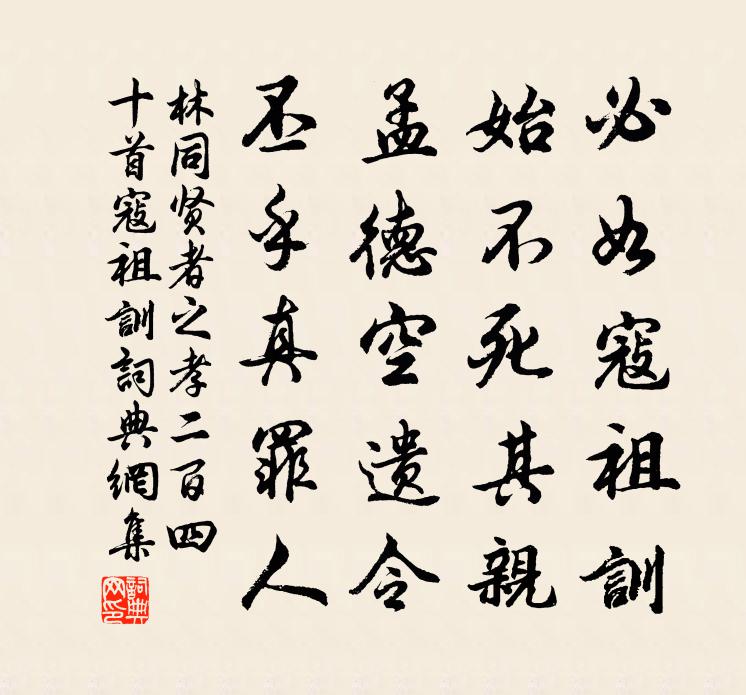 必如寇祖訓
始不死其親
孟德空遺令
丕乎真罪人
林同贤者之孝二百四
十首寇祖訓詞典網集
詞典網印